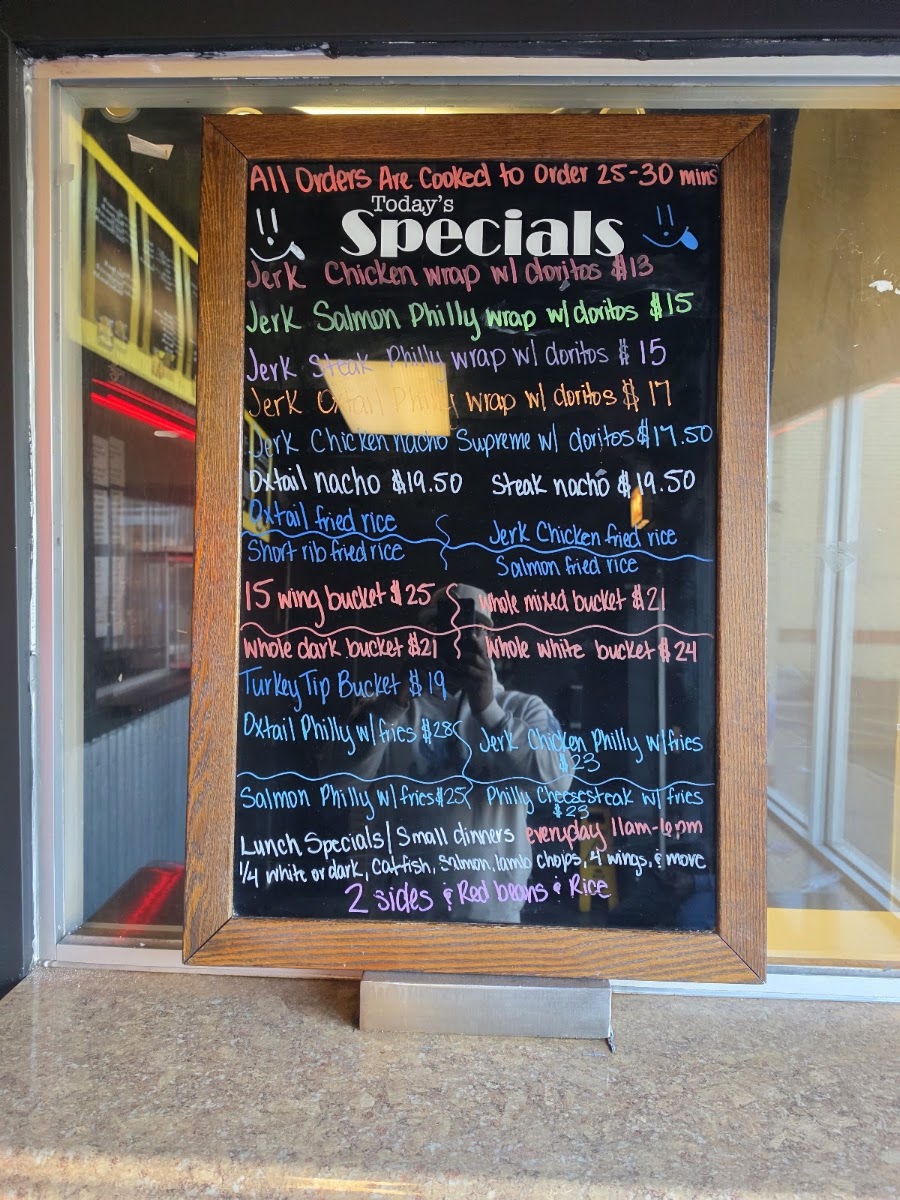 All Orders Are Cooked to Order 25-30 mins
Today's
Specials
Jerk Chicken wrap w/ doritos $13
Jerk Salmon Philly wrap w/ doritos $15
Jerk Steak Philly wrap w/ doritos $15
Jerk Oxtail Philly wrap w/ doritos $17
Jerk Chicken nacho Supreme w/ doritos $17.50
Oxtail nacho $19.50 Steak nacho $19.50
Oxtail fried rice Jerk Chicken fried rice
Short rib fried rice Salmon fried rice
15 wing bucket $25 whole mixed bucket $21
Whole dark bucket $21 Whole white bucket $24
Turkey Tip Bucket $19
Oxtail Philly w/ fries $28 Jerk Chicken Philly w/ fries
$23
Salmon Philly w/ fries $25 Philly Cheesesteak w/ fries
$23
Lunch Specials/Small dinners everyday 11am-6pm
1/4 white or dark, Catfish, Salmon, lamb chops, 4 wings, & more
2 sides & Red beans & Rice